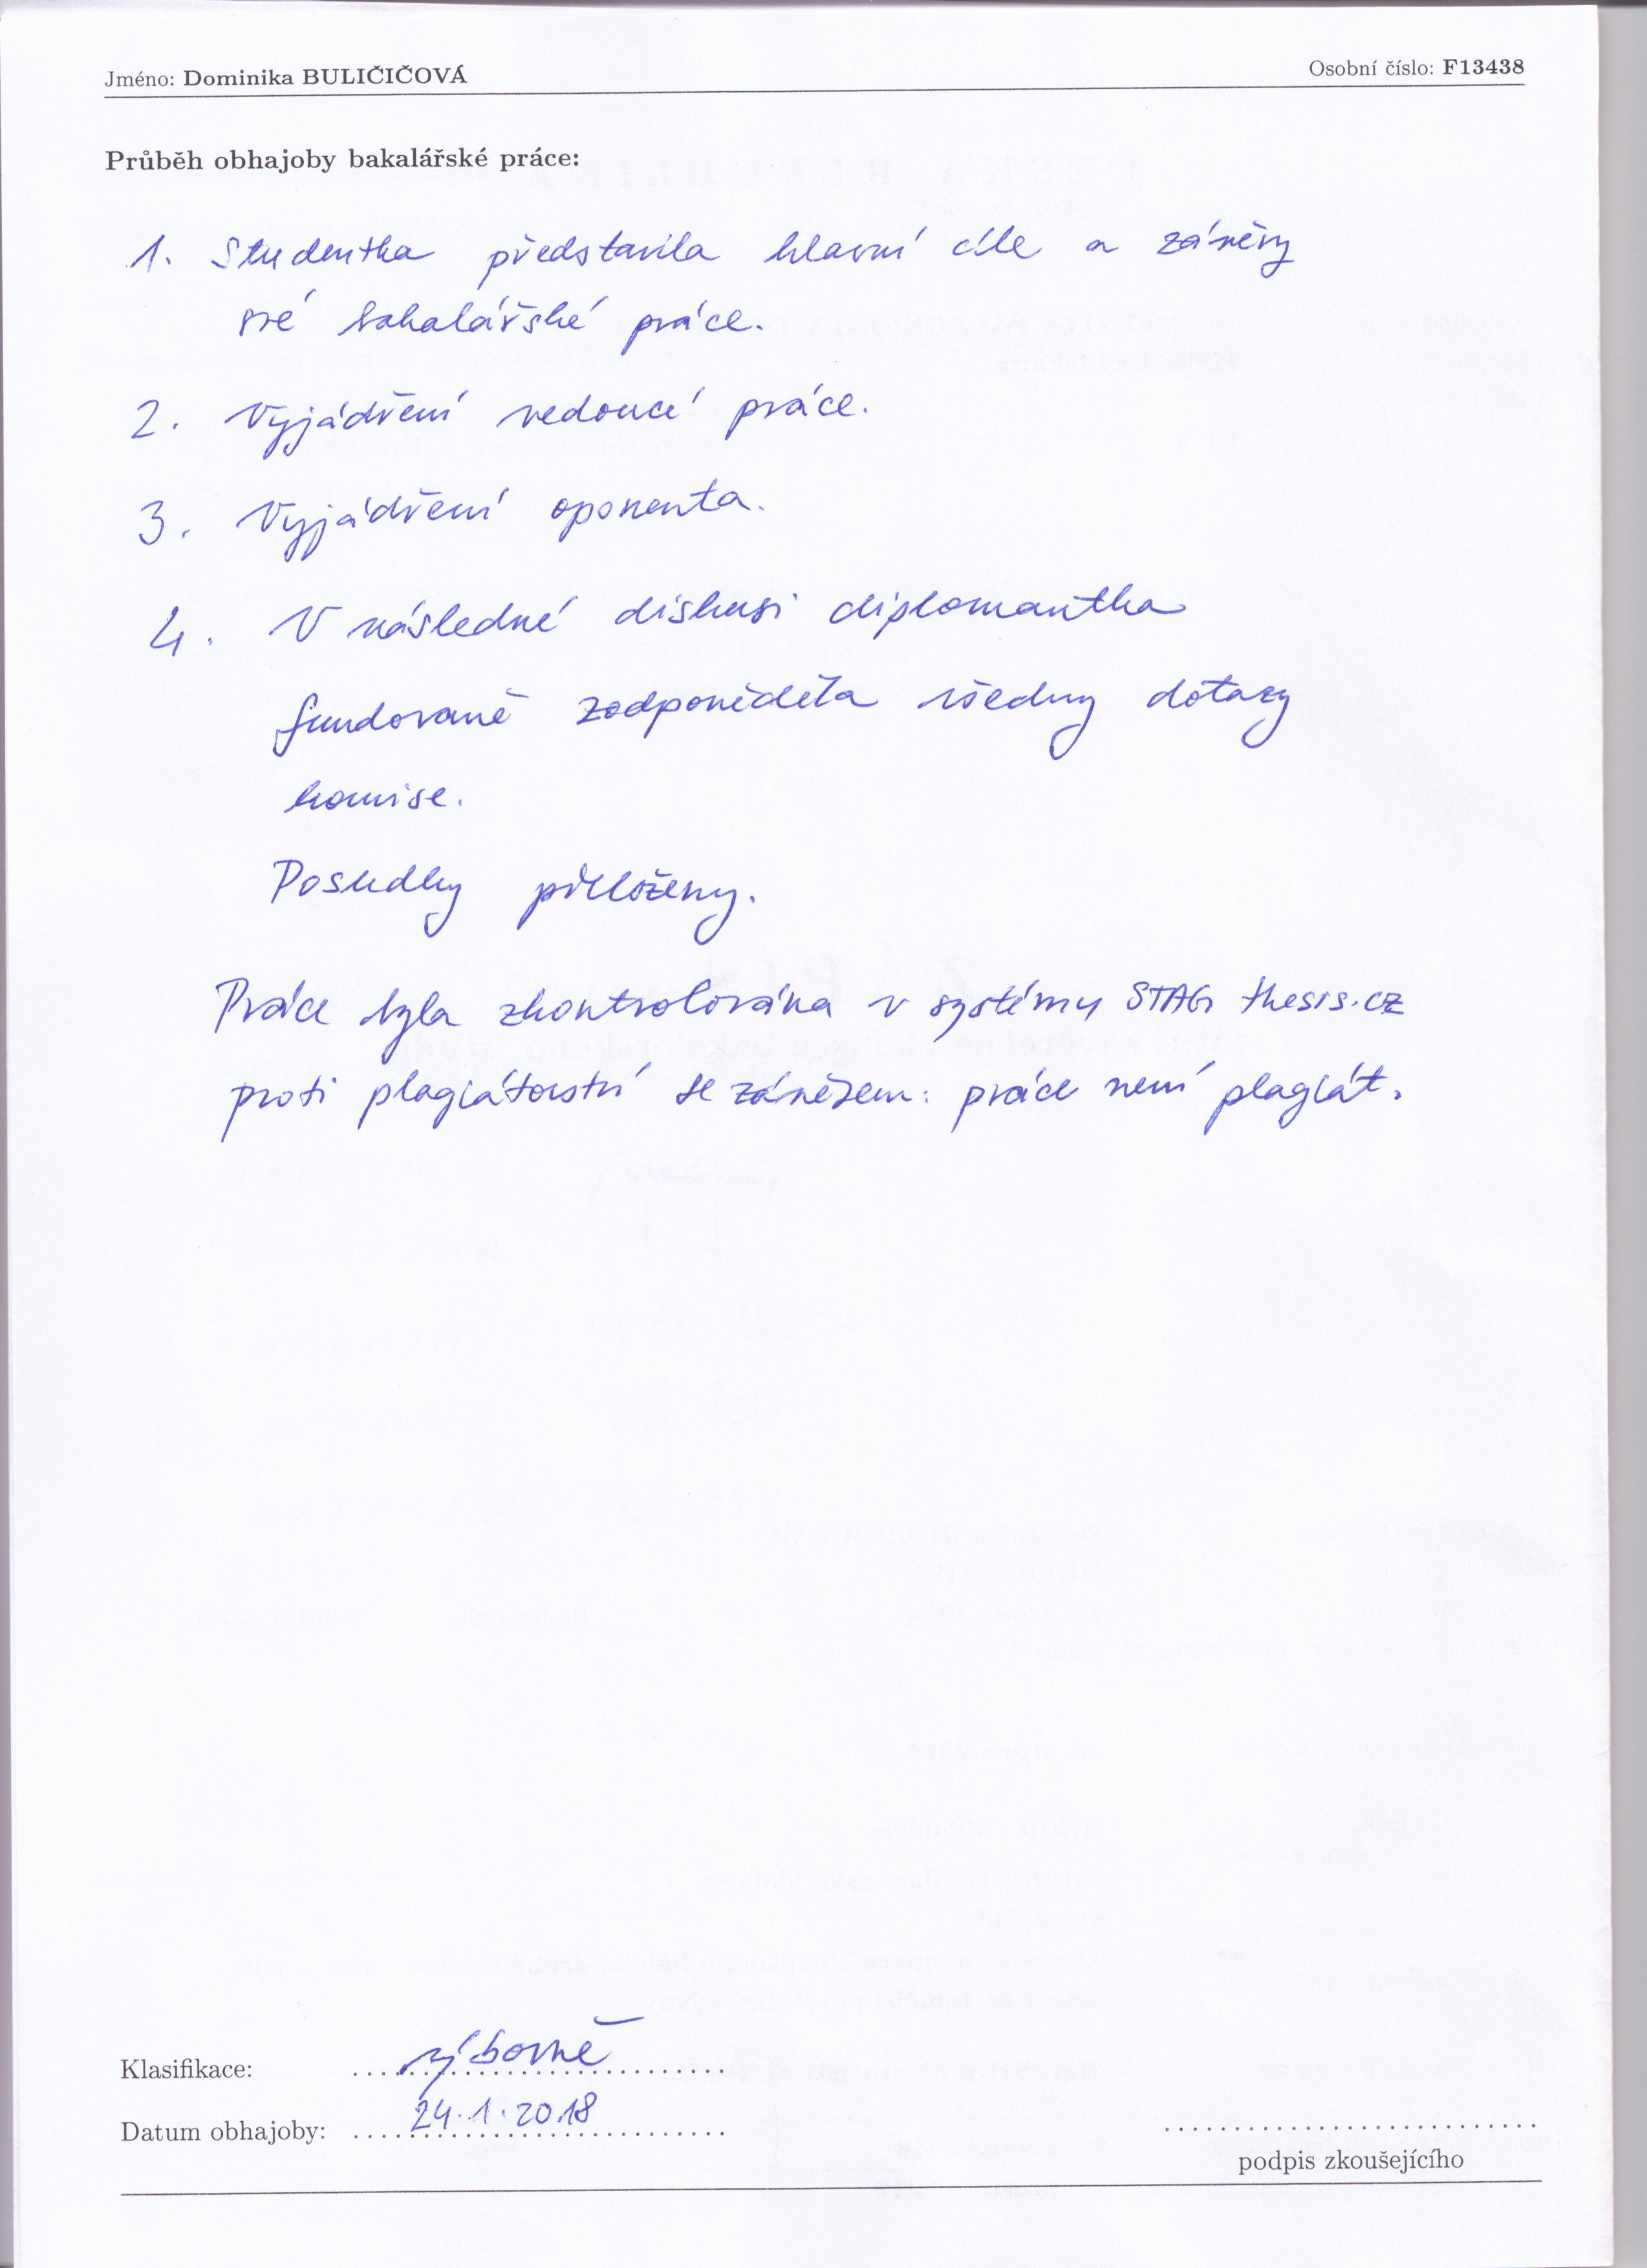 Jméno: Dominika BULIČIČOVÁ Osobní číslo: F13438
Průběh obhajoby bakalářské práce:
1. Studentka představila hlavní cíle a závěry
své bakalářské práce.
2. Vyjádření vedoucí práce.
3. Vyjádření oponenta.
4. V následné diskusi diplomantka
fundovaně zodpověděla všechny dotazy
komise.
Posudky přiloženy.
Práce byla zkontrolována v systému STAG thesis.cz
proti plagiátorství se závěrem: práce není plagiát.
Klasifikace: výborně
Datum obhajoby: 24.1.2018
podpis zkoušejícího